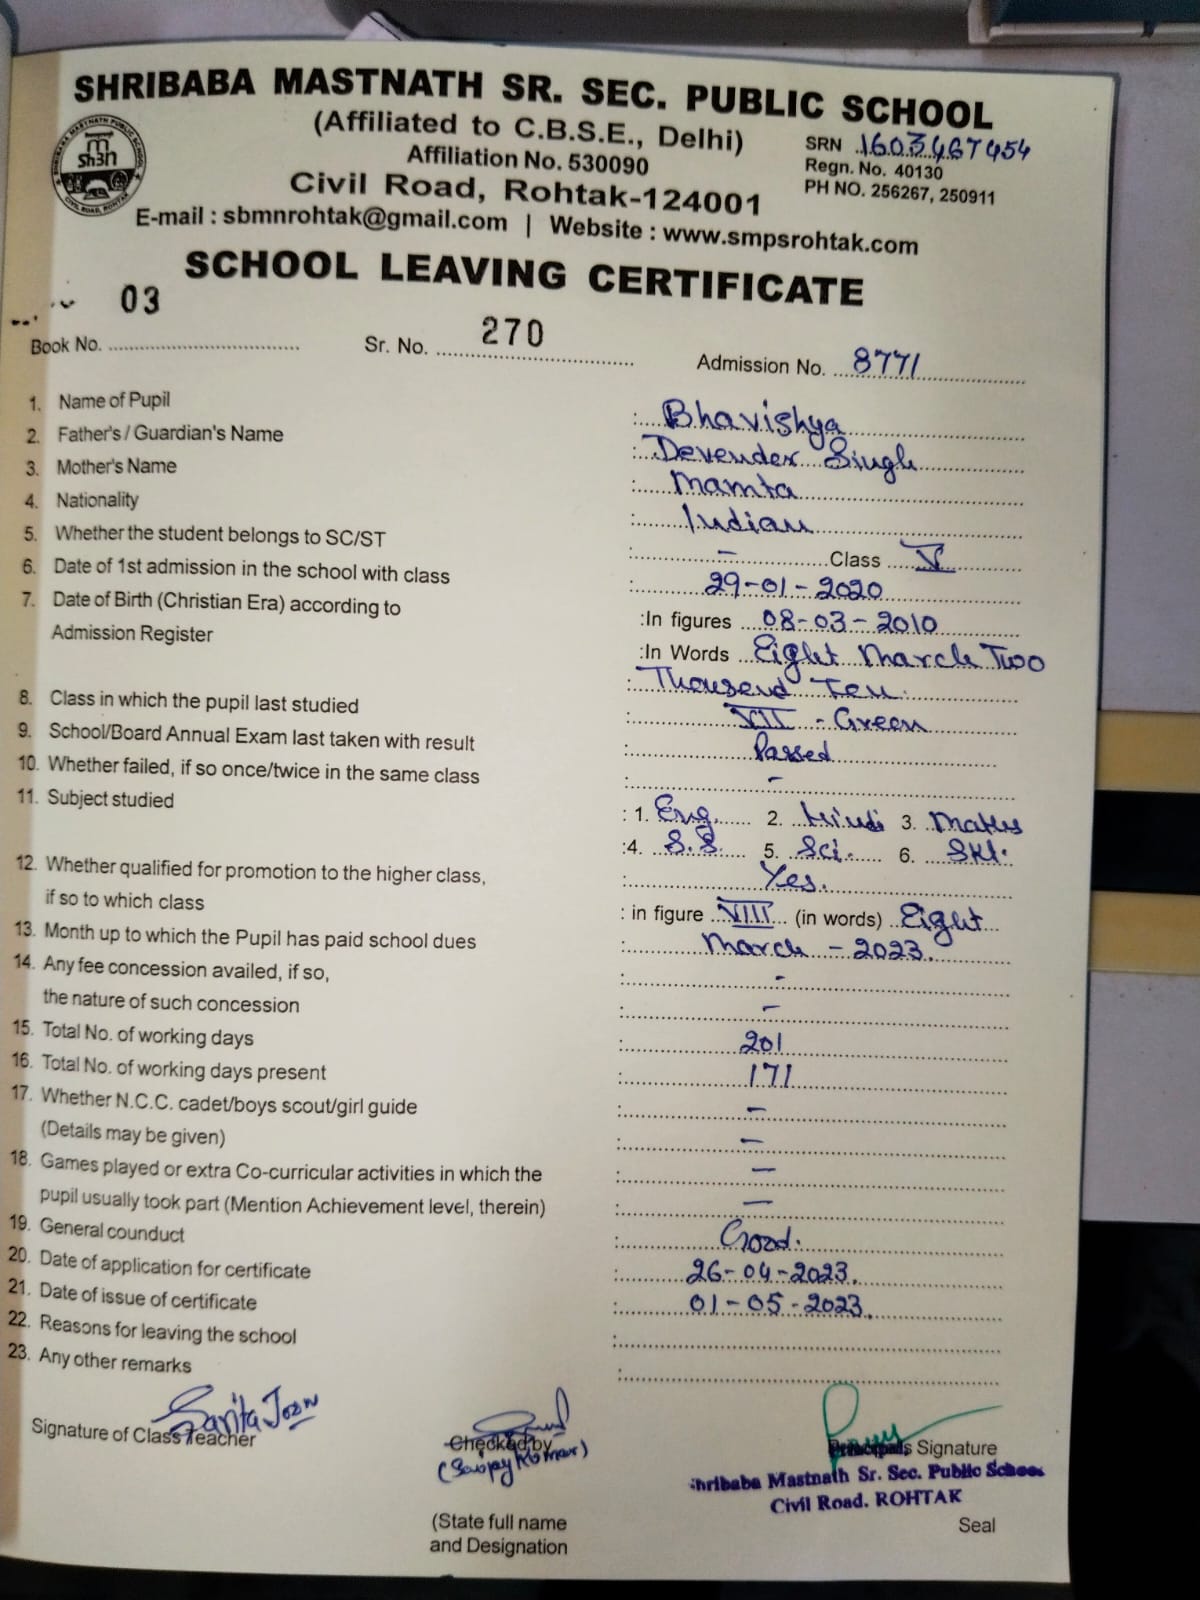 SHRIBABA MASTNATH SR. SEC. PUBLIC SCHOOL
(Affiliated to C.B.S.E., Delhi)
SRN 1603467454
Affiliation No. 530090
Regn. No. 40130
Civil Road, Rohtak-124001
PH NO. 256267, 250911
E-mail : sbmnrohtak@gmail.com | Website : www.smpsrohtak.com
SCHOOL LEAVING CERTIFICATE
Book No. 03 Sr. No. 270 Admission No. 8771
1. Name of Pupil : Bhavishya
2. Father's / Guardian's Name : Devender Singh
3. Mother's Name : Mamta
4. Nationality : Indian
5. Whether the student belongs to SC/ST : – Class V
6. Date of 1st admission in the school with class : 29-01-2020
7. Date of Birth (Christian Era) according to :In figures 08-03-2010
Admission Register :In Words Eight March Two
: Thousend Ten.
8. Class in which the pupil last studied : VII - Green
9. School/Board Annual Exam last taken with result : Passed
10. Whether failed, if so once/twice in the same class : -
11. Subject studied : 1. Eng. 2. Hindi 3. Maths
:4. S.S. 5. Sci. 6. Skt.
12. Whether qualified for promotion to the higher class, : Yes.
if so to which class : in figure VIII (in words) Eight
13. Month up to which the Pupil has paid school dues : March - 2023.
14. Any fee concession availed, if so, : -
the nature of such concession : –
15. Total No. of working days : 201
16. Total No. of working days present : 171
17. Whether N.C.C. cadet/boys scout/girl guide : –
(Details may be given) : –
18. Games played or extra Co-curricular activities in which the : –
pupil usually took part (Mention Achievement level, therein) : –
19. General counduct : Good.
20. Date of application for certificate : 26-04-2023.
21. Date of issue of certificate : 01-05-2023.
22. Reasons for leaving the school :
23. Any other remarks :
Sarita
Signature of Class Teacher
Checked by
(Sanjay Kumar)
Principals Signature
Shribaba Mastnath Sr. Sec. Public School
Civil Road. ROHTAK
(State full name
and Designation
Seal